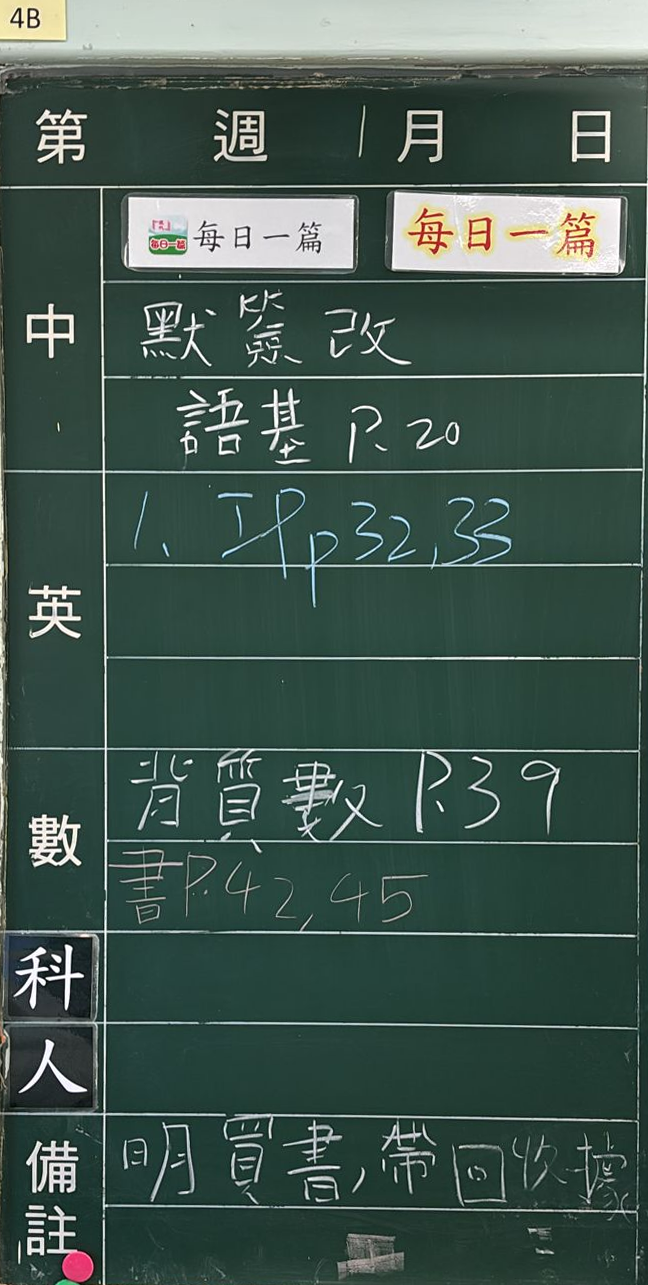 4B
第 週 月 日
中
每日一篇 每日一篇
默簽改
語基 P.20
英
1、工作p32,33
數
背質數 P.39
書P.42,45
科
人
備註
明買書,帶回收據